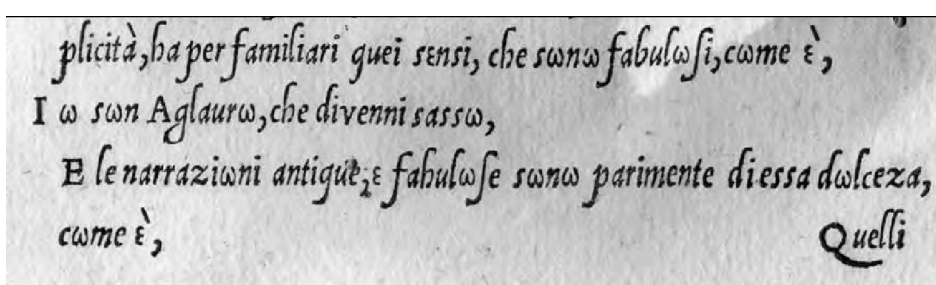 plicità, ha per familiari quei sεnsi, che sωnω fabulωſi, cωme ὲ,
I ω sωn Aglaurω, che divenni sassω,
E le narraziωni antique, ε fabulωſe sωnω parimente di essa dωlceza,
cωme ὲ, Quelli